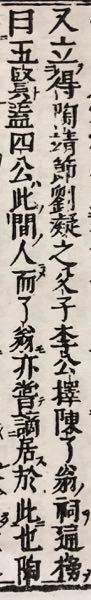 又立得陶靖節劉凝之父子李公擇陳了翁祠遍榜
曰五賢盖四公此間人而了翁亦嘗謫居於此也陶